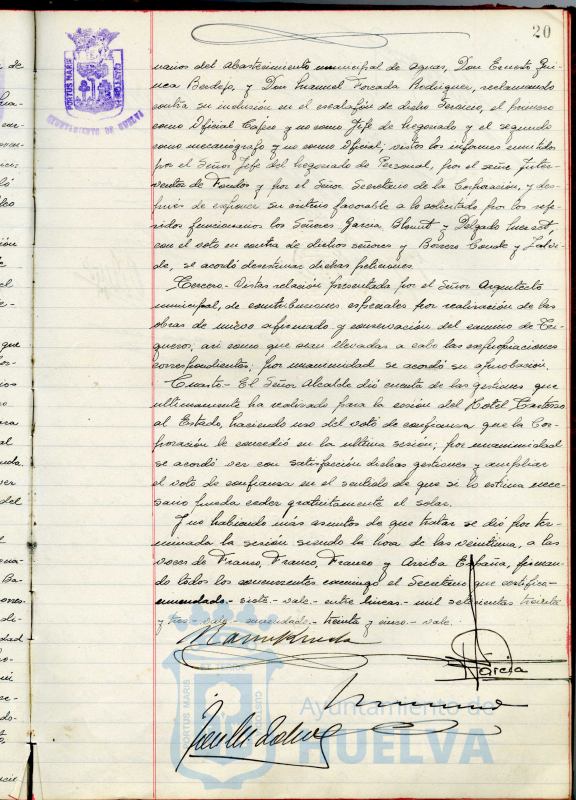 20
PORTUS MARIS
CUSTODIA
AYUNTAMIENTO DE HUELVA
narios del abastecimiento municipal de aguas, Don Ernesto
Bendejo, y Don Manuel Forcada Rodriguez, reclamando
contra su inclusión en el escalafón de dicho Servicio, el primero
como Oficial Cajero y no como Jefe de Negociado y el segundo
como mecanógrafo y no como Oficial; vistos los informes emitidos
por el Señor Jefe del Negociado de Personal, por el señor Inter-
ventor de Fondos y por el Señor Secretario de la Corporación, y des-
pués de exponer su criterio favorable a lo solicitado por los refe-
ridos funcionarios los Señores Garcia y Delgado
con el voto en contra de dichos señores y Borrero Conde y
se acordó desestimar dichas peticiones.
Tercero- Vistas relación presentada por el Señor Arquitecto
municipal, de contribuciones especiales por realización de las
obras de nuevo afirmado y conservación del camino de
asi como que sean llevadas a cabo las expropiaciones
correspondientes, por unanimidad se acordó su aprobación.
Cuarto- El Señor Alcalde dió cuenta de las gestiones que
ultimamente ha realizado para la cesión del Hotel
al Estado, haciendo uso del voto de confianza que la Cor-
poración le concedió en la ultima sesión; por unanimidad
se acordó ver con satisfacción dichas gestiones y ampliar
el voto de confianza en el sentido de que si lo estima nece-
sario pueda ceder gratuitamente el solar.
Y no habiendo más asuntos de que tratar se dió por ter-
minada la sesión siendo la hora de las veintiuna, a las
voces de Franco, Franco, Franco y Arriba España, firman-
do todos los concurrentes conmigo el Secretario que certifico-
enmendado.- vista- vale- entre lineas- mil setecientas treinta
y tres- vale- enmendado- treinta y cinco- vale.
Garcia
Ayuntamiento de
HUELVA